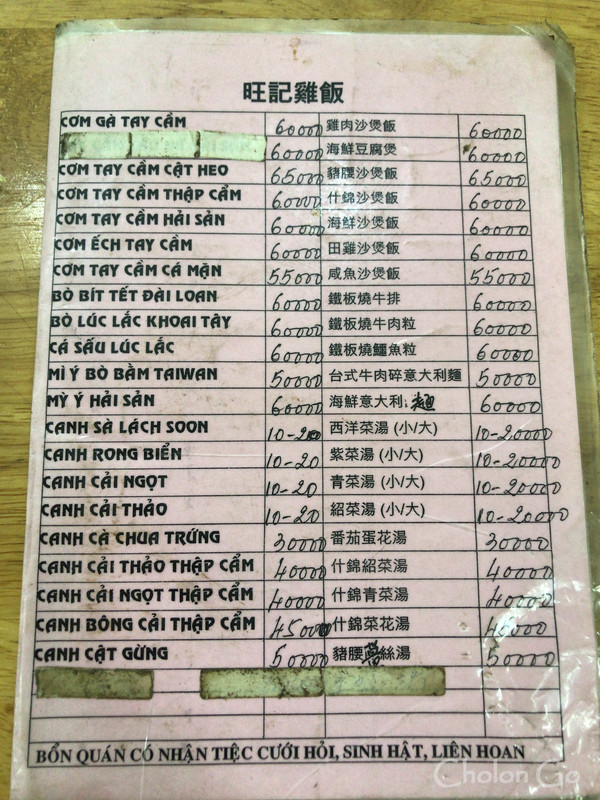 旺記雞飯
CƠM GÀ TAY CẦM 60000 雞肉沙煲飯 60000
60000 海鮮豆腐煲 60000
CƠM TAY CẦM CẬT HEO 65000 豬腰沙煲飯 65000
CƠM TAY CẦM THẬP CẨM 60000 什錦沙煲飯 60000
CƠM TAY CẦM HẢI SẢN 60000 海鮮沙煲飯 60000
CƠM ẾCH TAY CẦM 60000 田雞沙煲飯 60000
CƠM TAY CẦM CÁ MẶN 55000 咸魚沙煲飯 55000
BÒ BÍT TẾT ĐÀI LOAN 60000 鐵板燒牛排 60000
BÒ LÚC LẮC KHOAI TÂY 60000 鐵板燒牛肉粒 60000
CÁ SẤU LÚC LẮC 60000 鐵板燒鱷魚粒 60000
MÌ Ý BÒ BẰM TAIWAN 50000 台式牛肉碎意大利麵 50000
MỲ Ý HẢI SẢN 60000 海鮮意大利 麵 60000
CANH SÀ LÁCH SOON 10-20 西洋菜湯 (小/大) 10-20000
CANH RONG BIỂN 10-20 紫菜湯 (小/大) 10-20000
CANH CẢI NGỌT 10-20 青菜湯 (小/大) 10-20000
CANH CẢI THẢO 10-20 紹菜湯 (小/大) 10-20000
CANH CÀ CHUA TRỨNG 30000 番茄蛋花湯 30000
CANH CẢI THẢO THẬP CẨM 40000 什錦紹菜湯 40000
CANH CẢI NGỌT THẬP CẨM 40000 什錦青菜湯 40000
CANH BÔNG CẢI THẬP CẨM 45000 什錦菜花湯 45000
CANH CẬT GỪNG 50000 豬腰 絲湯 50000
BỔN QUÁN CÓ NHẬN TIỆC CƯỚI HỎI, SINH HẬT, LIÊN HOAN
Cholon Go